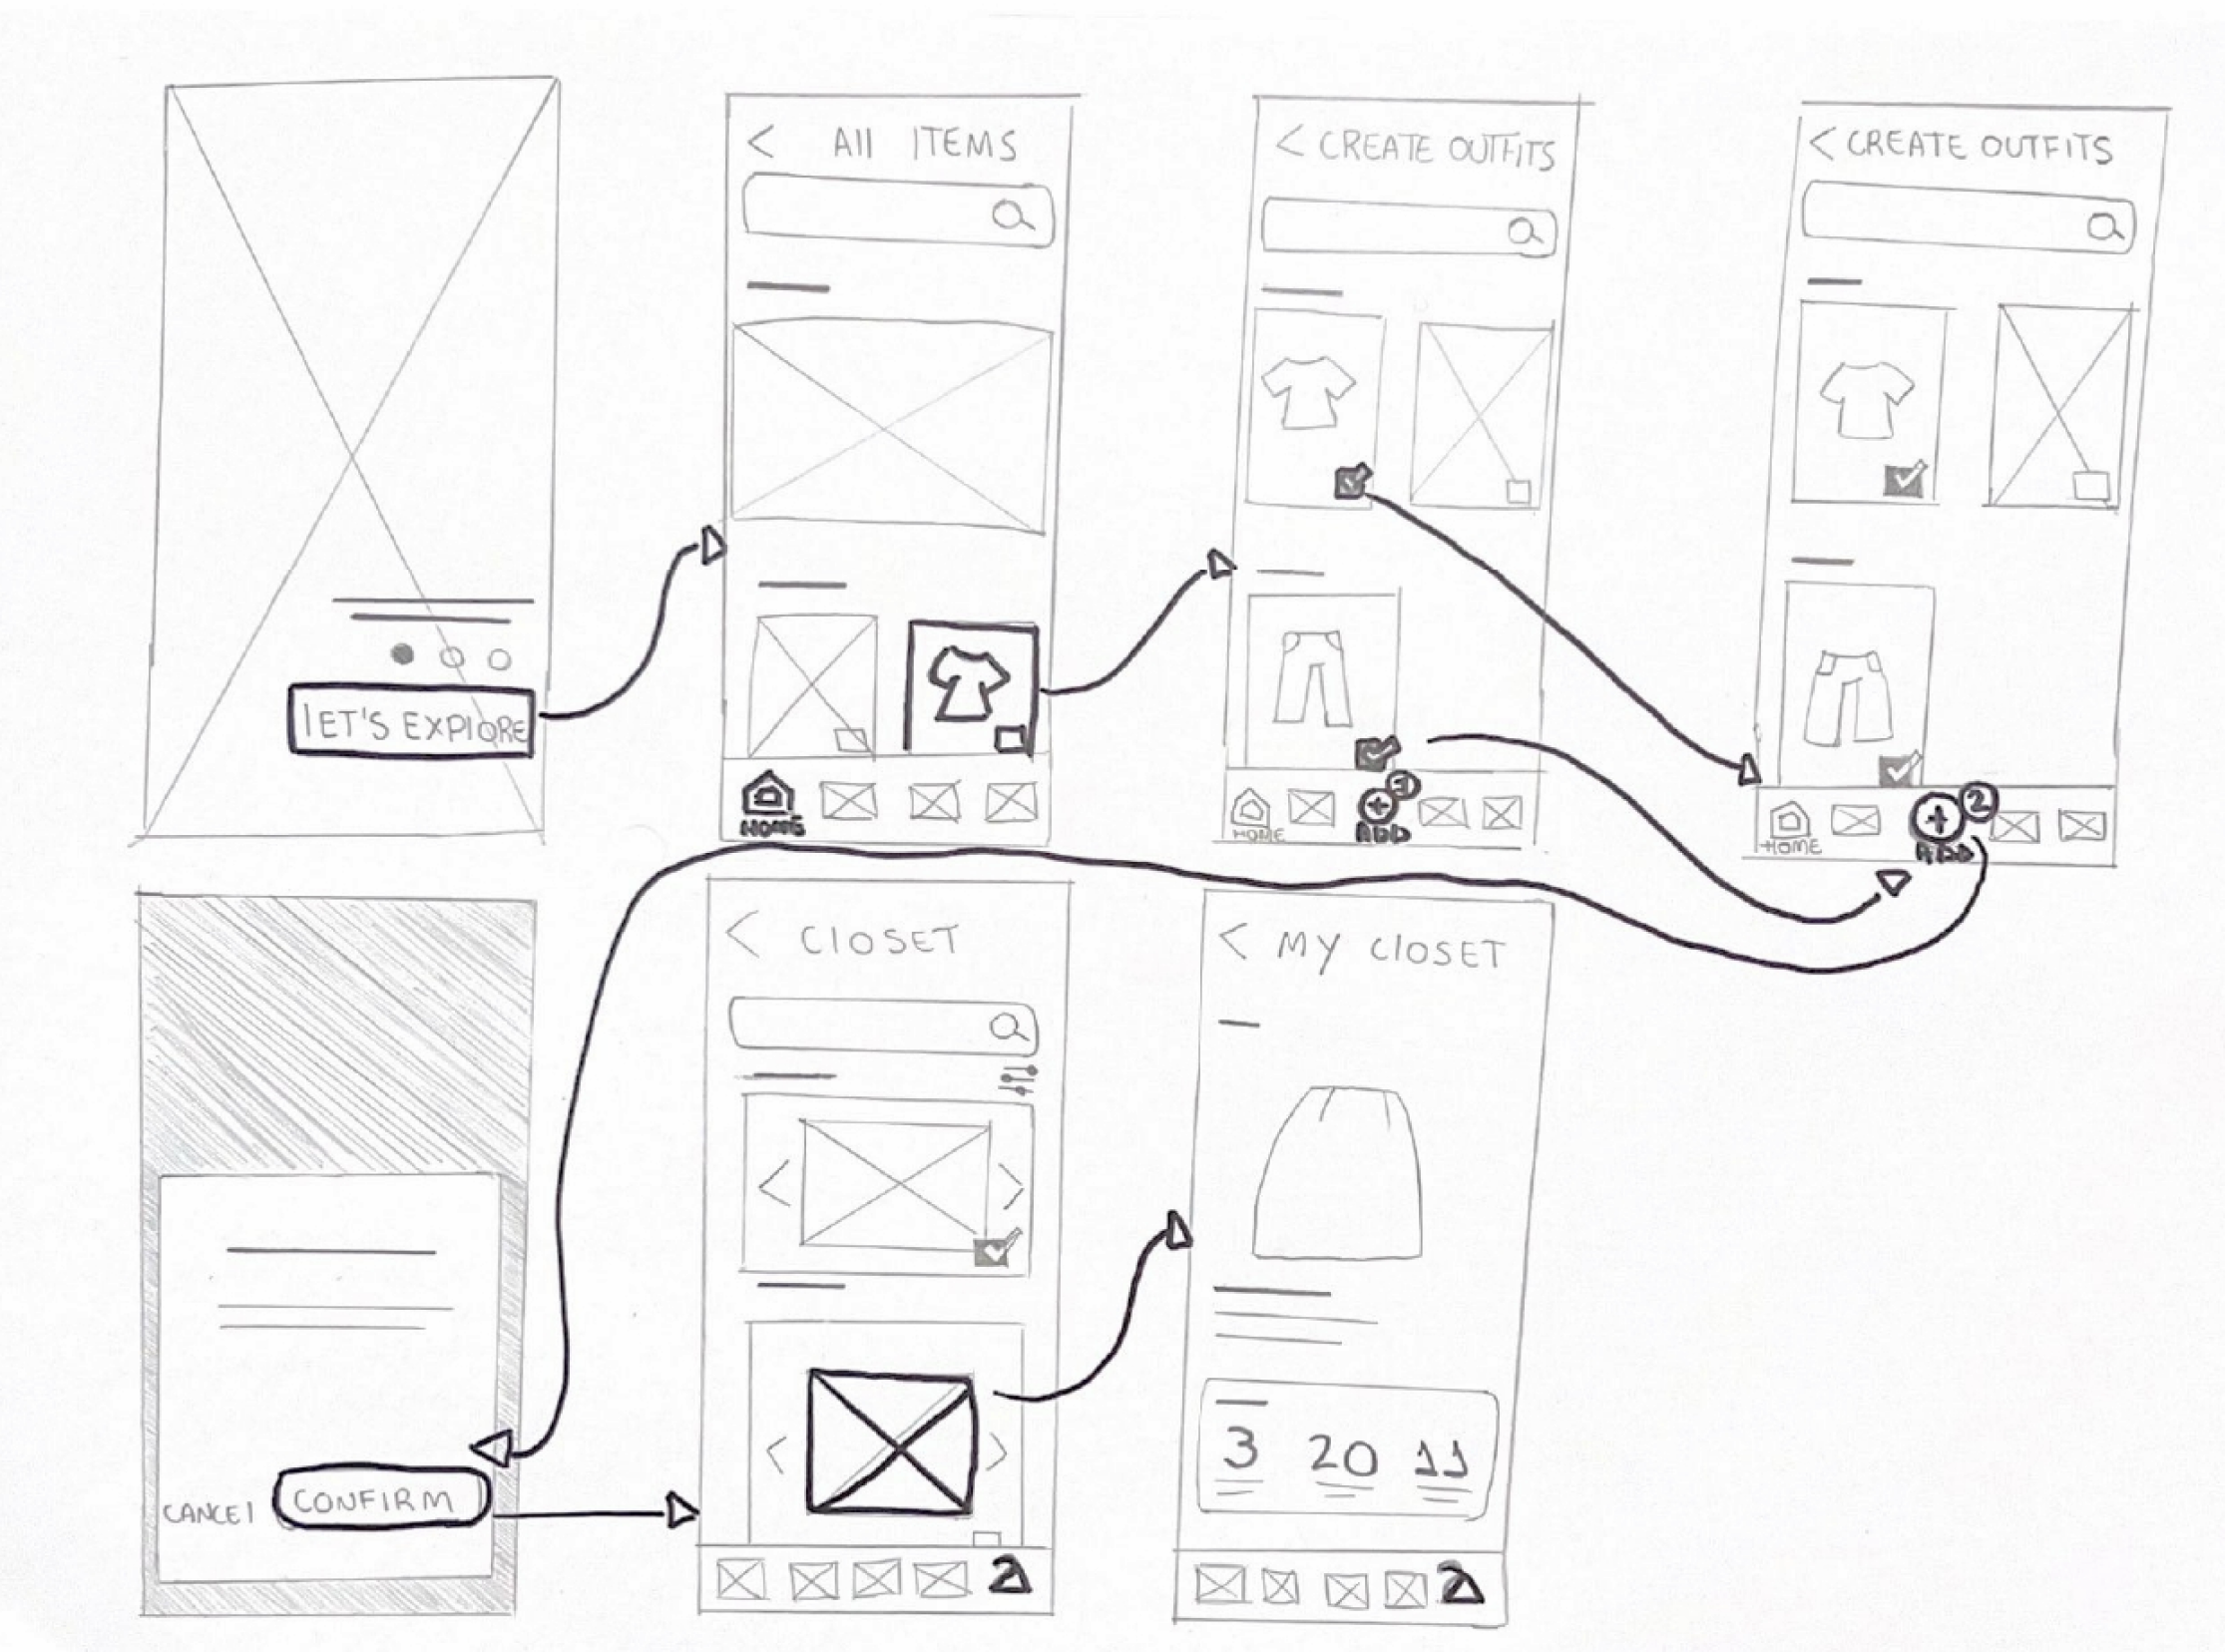 LET'S EXPLORE
< All ITEMS
HOME
< CREATE OUTFITS
HOME
1
ADD
< CREATE OUTFITS
HOME
2
ADD
CANCEL
CONFIRM
< CLOSET
< MY CLOSET
3 20 11